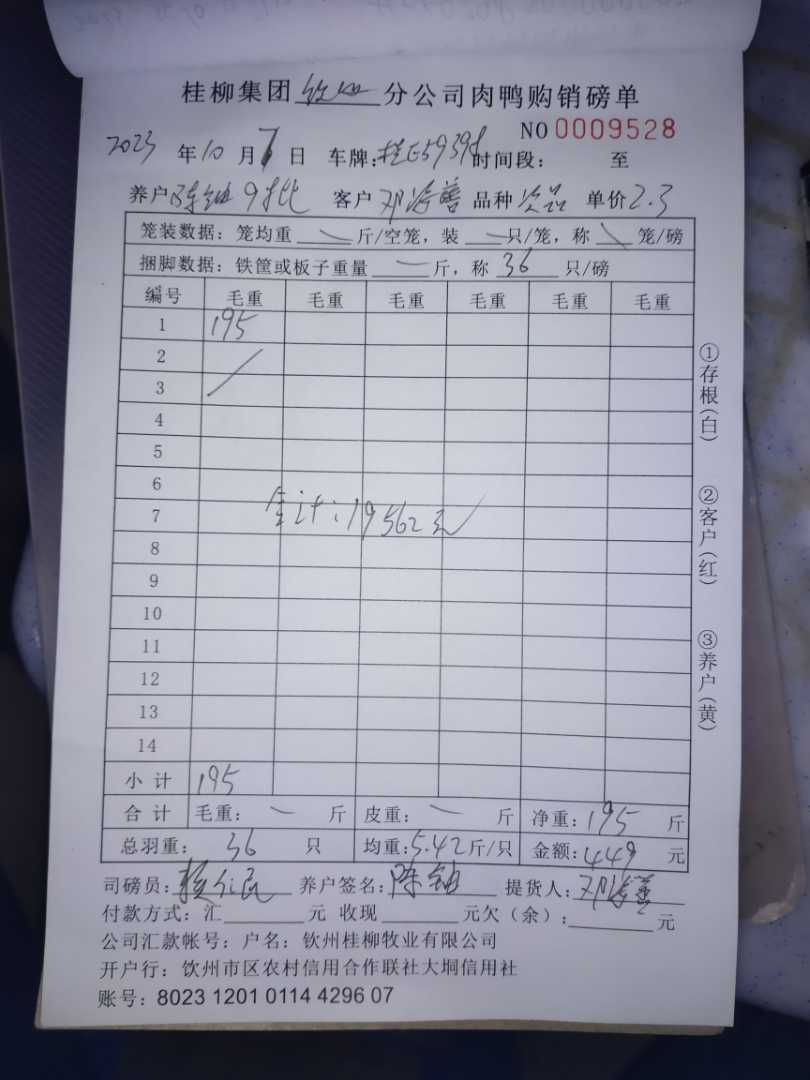 桂柳集团 钦州 分公司肉鸭购销磅单
NO 0009528
2023 年 10 月 7 日 车牌: 桂E5939 时间段: 至
养户 陈 9批 客户 邓海善 品种 次品 单价 2.3
笼装数据: 笼均重 斤/空笼, 装 只/笼, 称 笼/磅
捆脚数据: 铁筐或板子重量 斤, 称 36 只/磅
编号 毛重 毛重 毛重 毛重 毛重 毛重
1 195
2
3
4
5
6
7
合计: 19562元
8
9
10
11
12
13
14
小计 195
合计 毛重: 斤 皮重: 斤 净重: 195 斤
总羽重: 36 只 均重: 5.42 斤/只 金额: 449 元
司磅员: 养户签名: 陈 提货人: 邓海善
付款方式: 汇 元 收现 元欠(余): 元
公司汇款帐号: 户名: 钦州桂柳牧业有限公司
开户行: 钦州市区农村信用合作联社大垌信用社
账号: 8023 1201 0114 4296 07
①存根(白)
②客户(红)
③养户(黄)